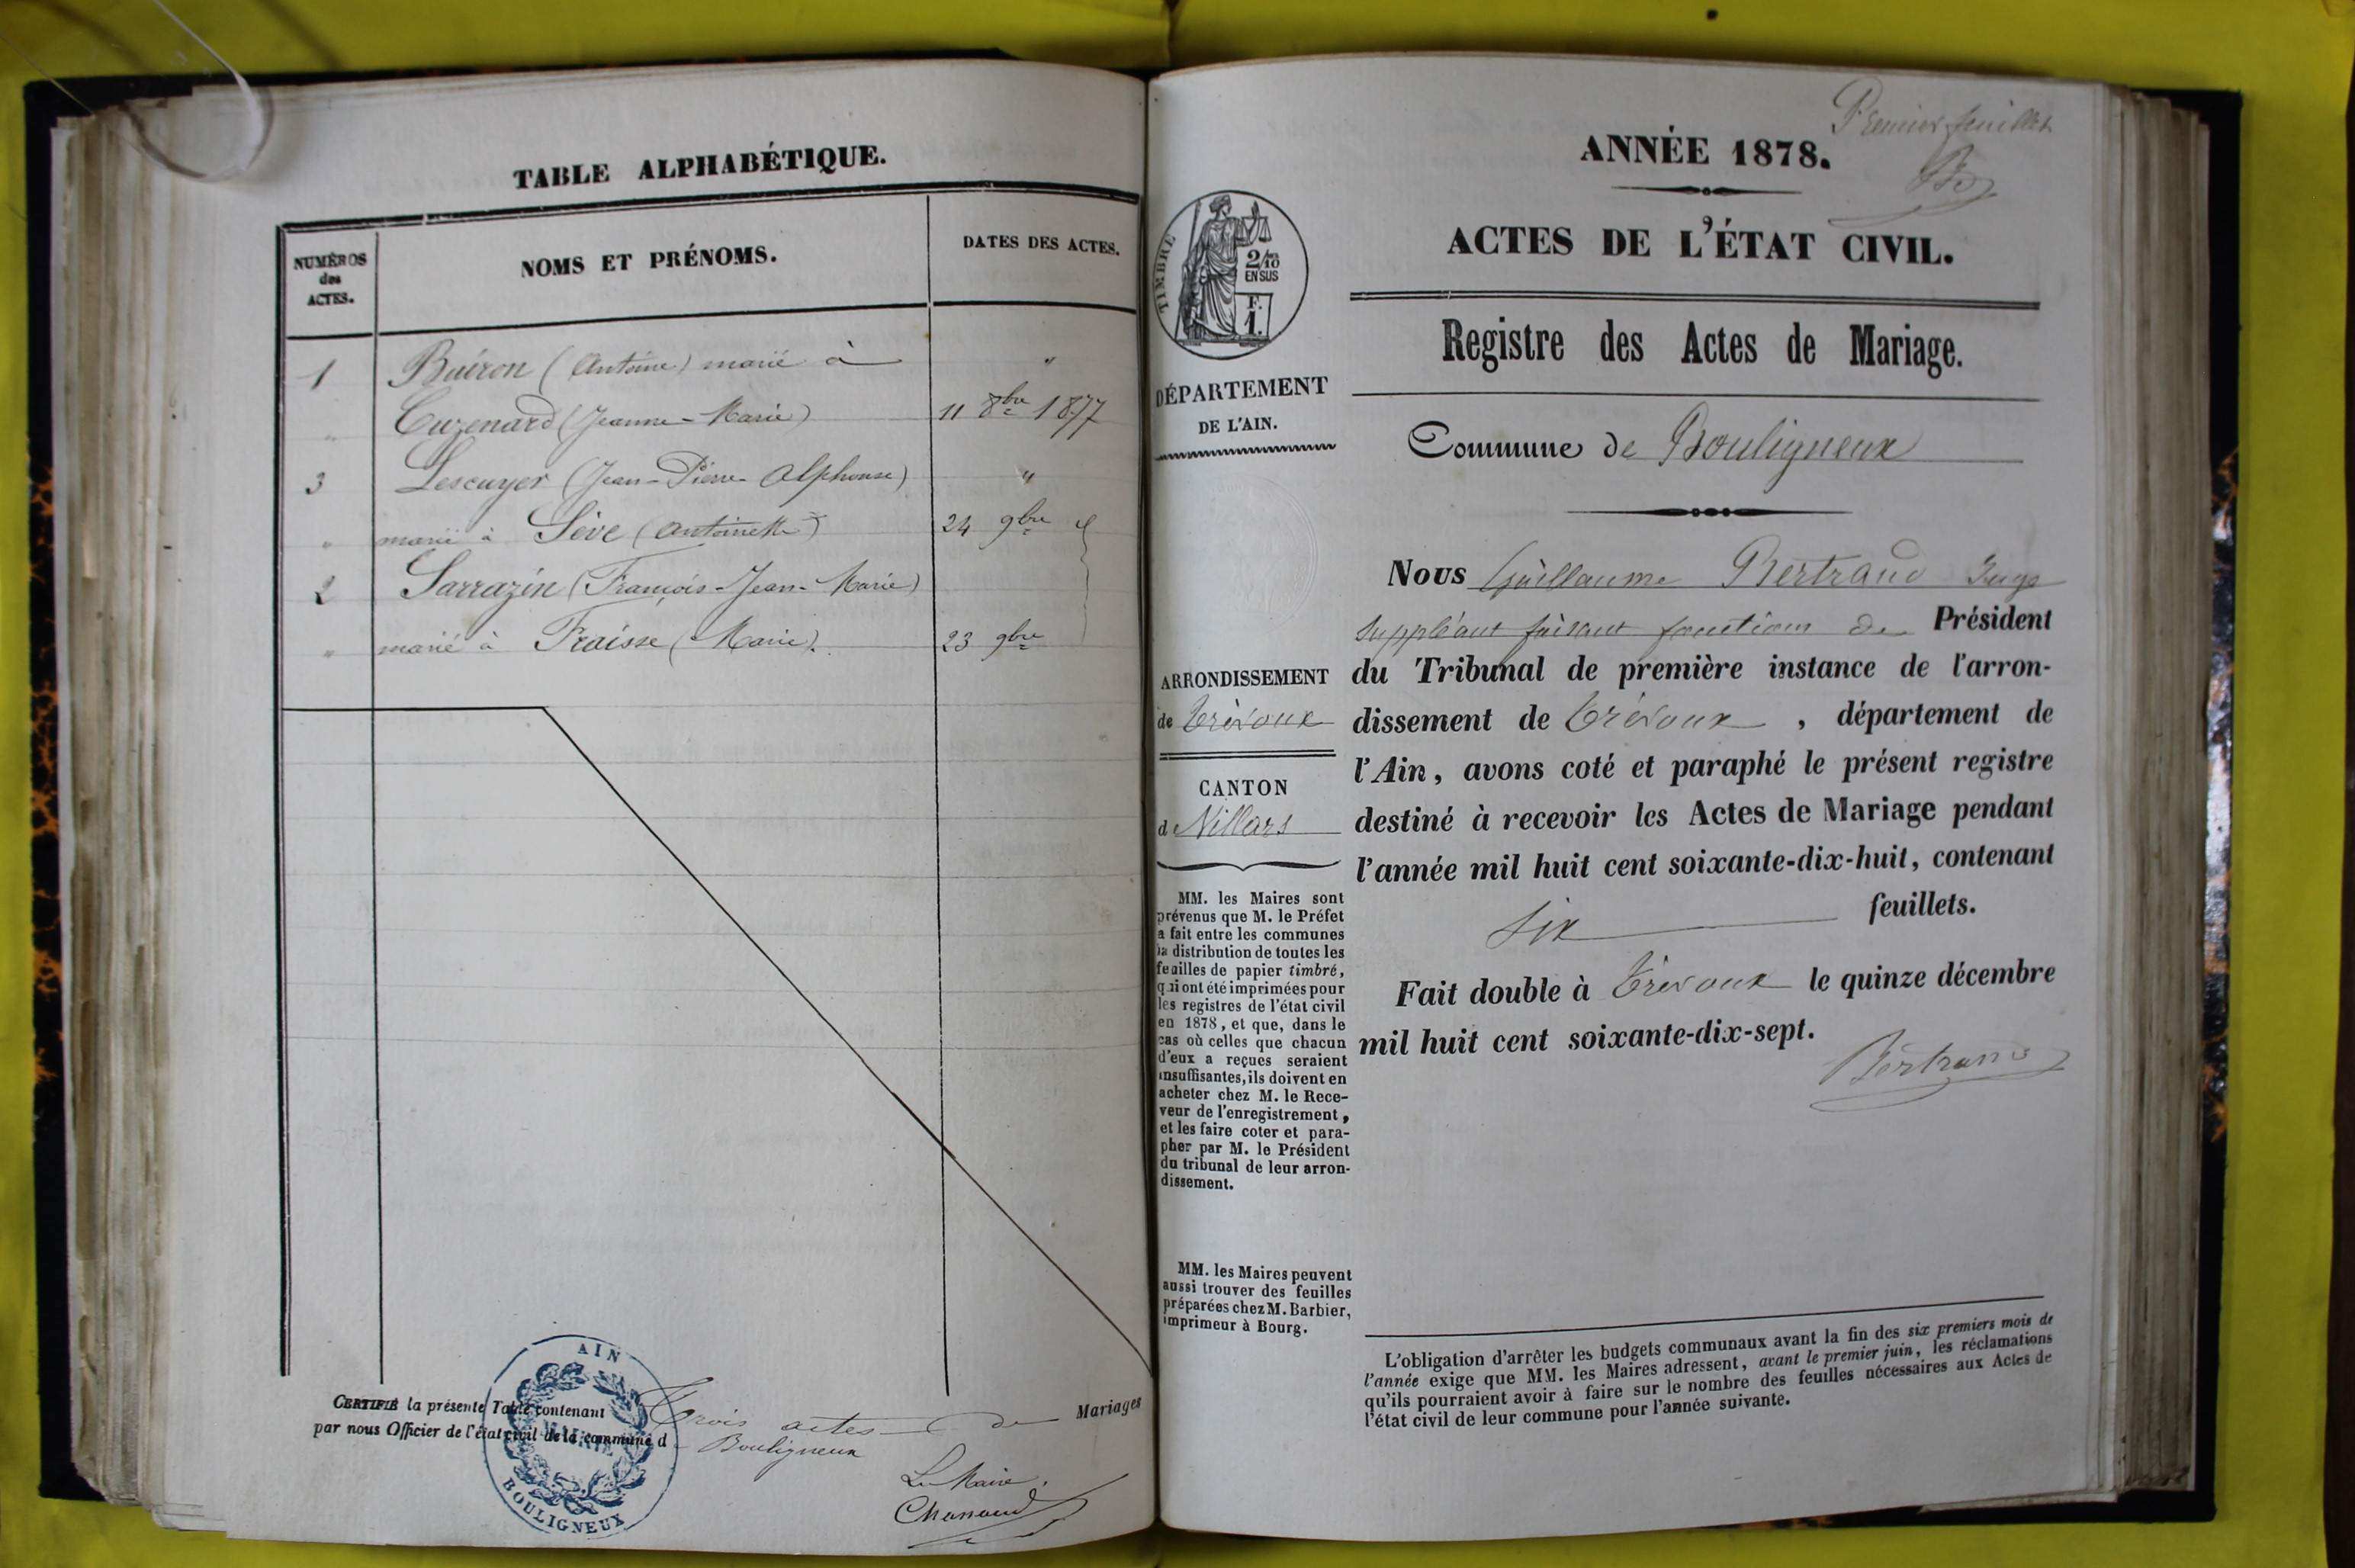 TABLE ALPHABÉTIQUE.
NUMÉROS
des
ACTES.
NOMS ET PRÉNOMS.
DATES DES ACTES.
1 Buiron (Antoine) marié à "
" Cuzenard (Jeanne-Marie) 11 8bre 1877
3 Lescuyer (Jean-Pierre-Alphonse) "
" marié à Sève (Antoinette) 24 9bre
2 Sarrazin (François-Jean-Marie)
" marié à Fraisse (Marie). 23 9bre
CERTIFIÉ la présente Table contenant Trois actes de Mariages
par nous Officier de l'état civil de la commune d Bouligneux
Le Maire,
AIN
MAIRIE
BOULIGNEUX
Premier feuillet
ANNÉE 1878.
ACTES DE L'ÉTAT CIVIL.
TIMBRE
2/10
EN SUS
F.
1.
DÉPARTEMENT
DE L'AIN.
ARRONDISSEMENT
de Trévoux
CANTON
de Villars
MM. les Maires sont
prévenus que M. le Préfet
a fait entre les communes
la distribution de toutes les
feuilles de papier timbré,
qui ont été imprimées pour
les registres de l'état civil
en 1878, et que, dans le
cas où celles que chacun
d'eux a reçues seraient
insuffisantes, ils doivent en
acheter chez M. le Rece-
veur de l'enregistrement,
et les faire coter et para-
pher par M. le Président
du tribunal de leur arron-
dissement.
MM. les Maires peuvent
aussi trouver des feuilles
préparées chez M. Barbier,
imprimeur à Bourg.
Registre des Actes de Mariage.
Commune de Bouligneux
Nous Guillaume Bertrand Juge
suppléant faisant fonctions de Président
du Tribunal de première instance de l'arron-
dissement de Trévoux, département de
l'Ain, avons coté et paraphé le présent registre
destiné à recevoir les Actes de Mariage pendant
l'année mil huit cent soixante-dix-huit, contenant
six feuillets.
Fait double à Trévoux le quinze décembre
mil huit cent soixante-dix-sept.
Bertrand
L'obligation d'arrêter les budgets communaux avant la fin des six premiers mois de
l'année exige que MM. les Maires adressent, avant le premier juin, les réclamations
qu'ils pourraient avoir à faire sur le nombre des feuilles nécessaires aux Actes de
l'état civil de leur commune pour l'année suivante.